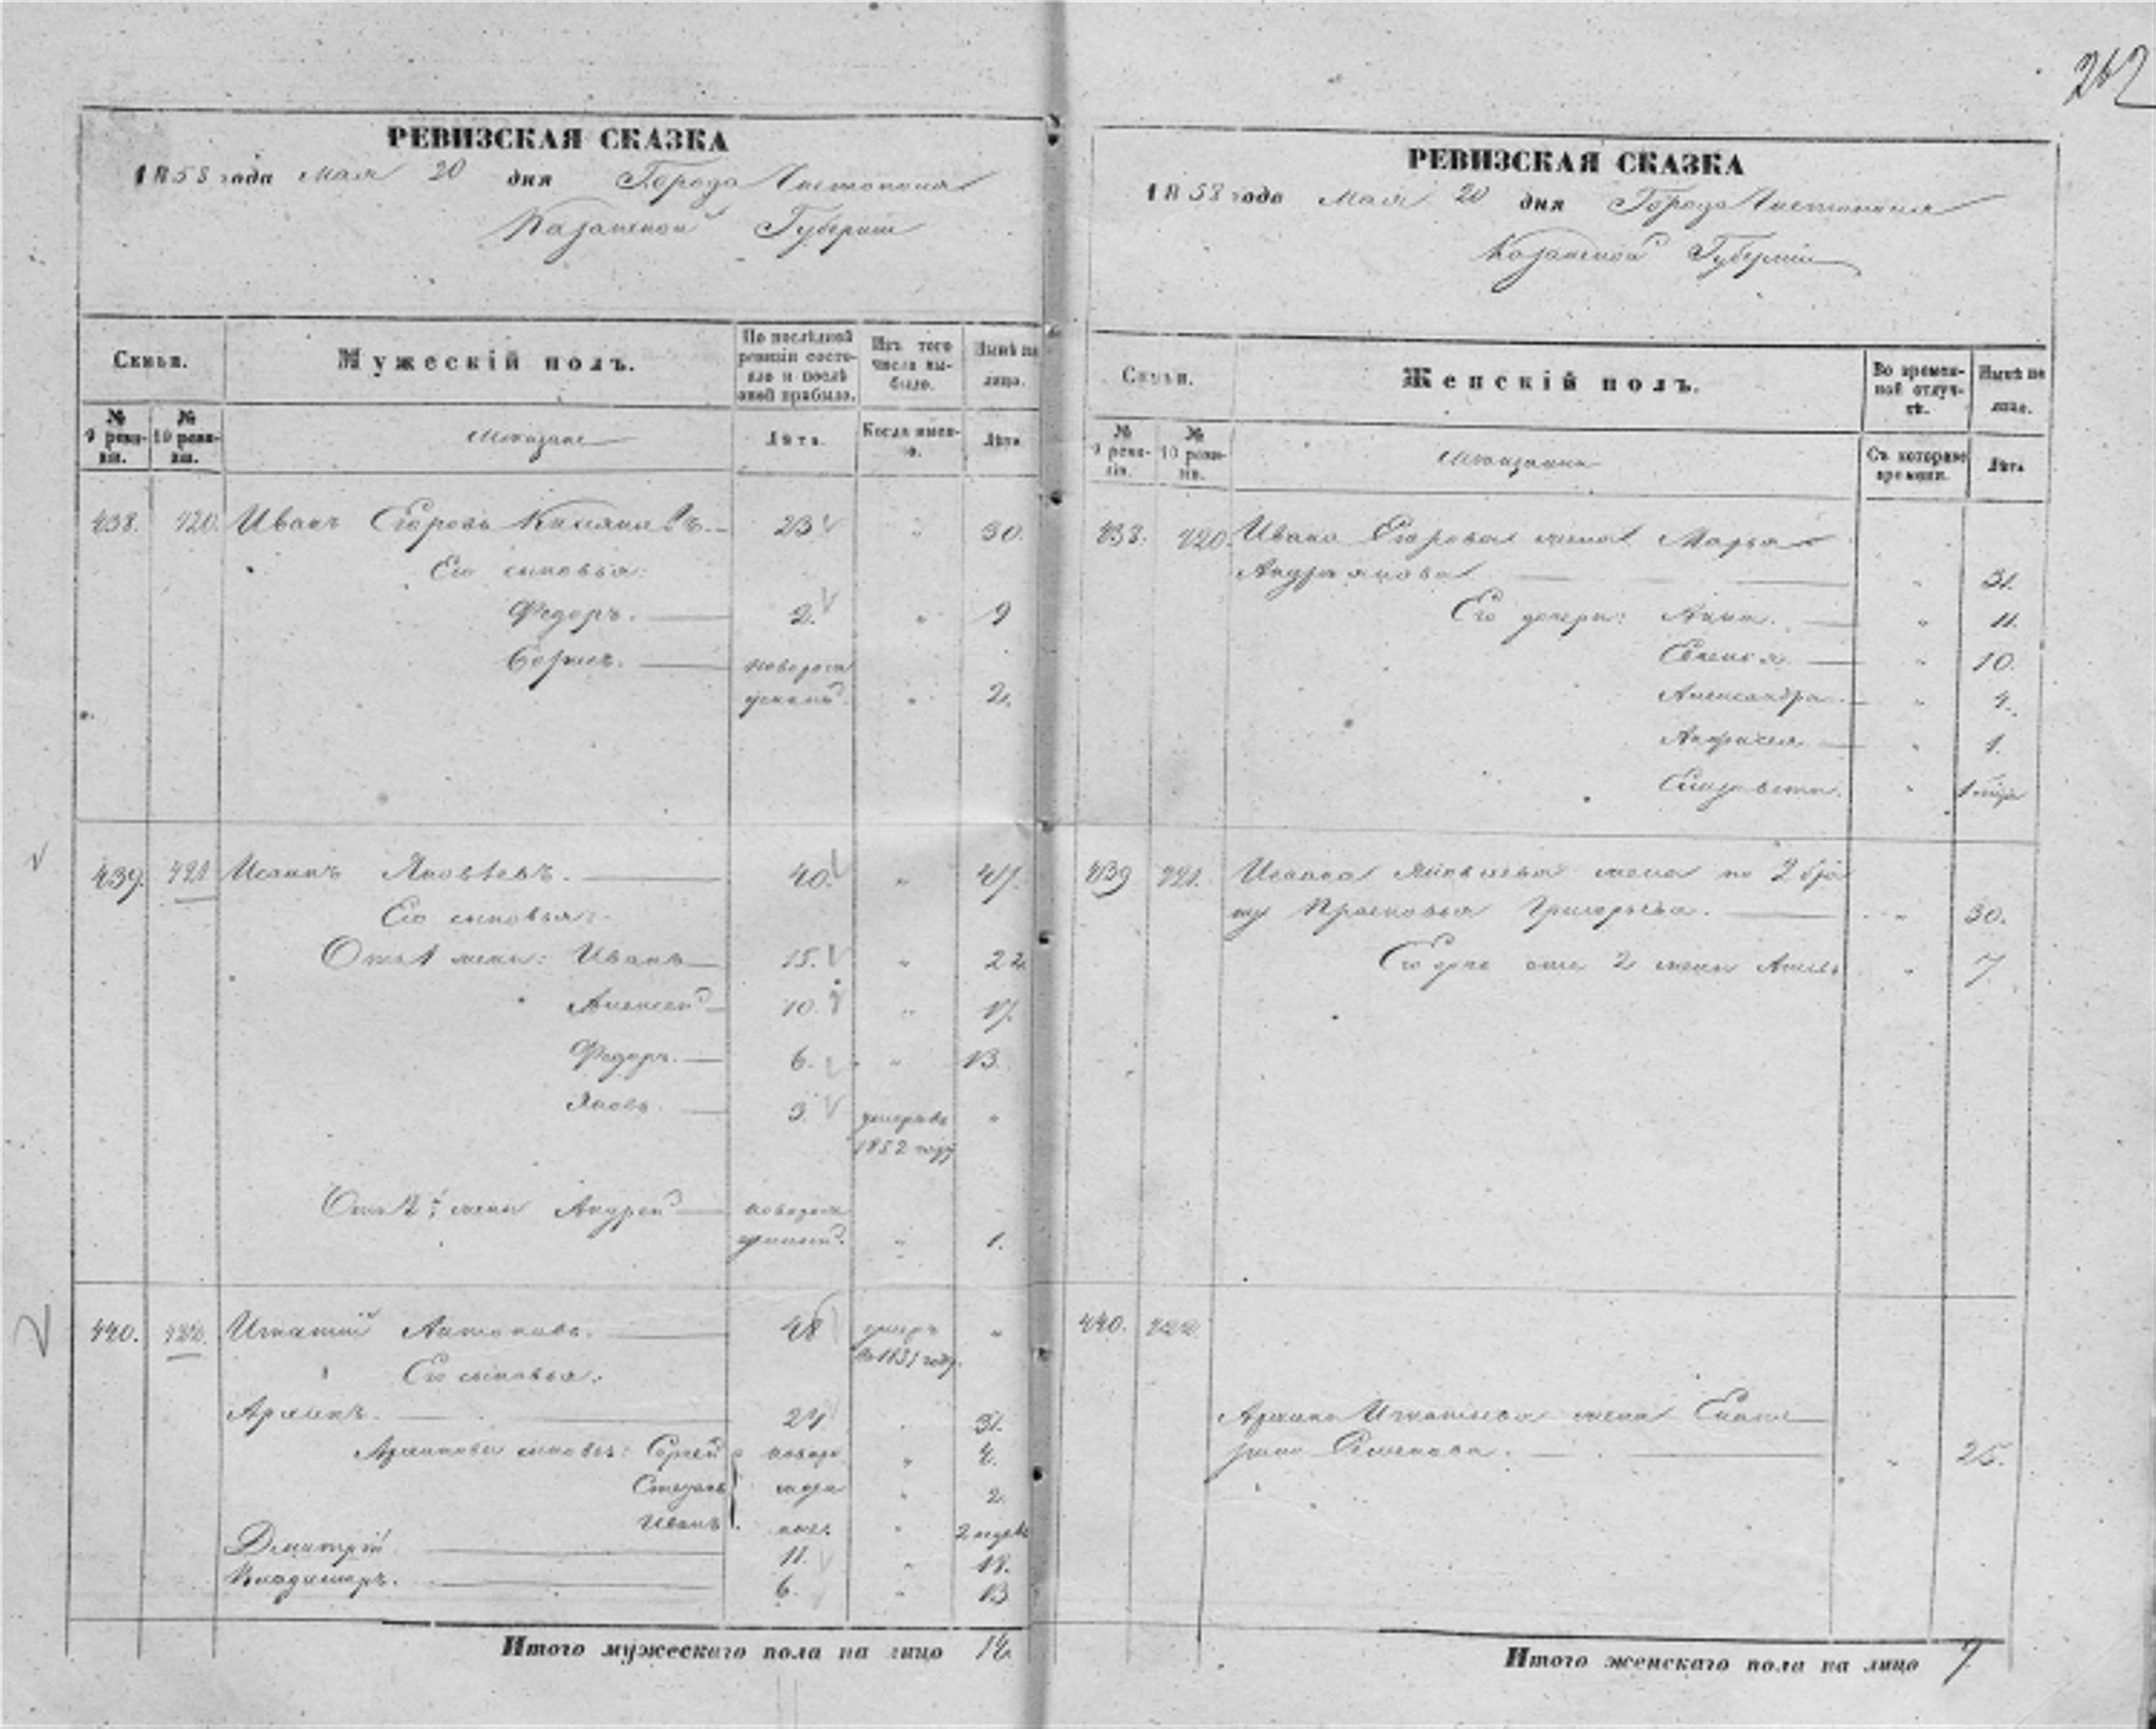 262
РЕВИЗСКАЯ СКАЗКА
1858 года Мая 20 дня Города Чистополя
Казанской Губернии
Семьи.
Мужескій полъ.
По послѣдней ревизіи состояло и послѣ оной прибыло.
Изъ того числа выбыло.
Нынѣ на лицо.
№ 9 ревизіи.
№ 10 ревизіи.
Мѣщане
Лѣта.
Когда именно.
Лѣта
438. 420. Иванъ Егоровъ 23 " 30.
Его сыновья:
Федоръ. 2. " 9
Борисъ. новорож
денный. " 2.
439. 421 Исакъ Яковлевъ. 40. " 47.
Его сыновья:
От 1 жены: Иванъ 15. " 22
Алексей 10. " 17.
Федоръ. 6. " 13.
Яковъ. 3. умеръ въ "
1852 году
От 2й жены Андрей новорож
денный. " 1.
440. 422. Игнатий Антоновъ. 48 умеръ "
въ 1851 году.
Его сыновья:
Архипъ. 24 " 31.
Архиповы сыновья: Сергей новоро " 4.
Степанъ жден " 2.
Иванъ ные. " 2 недель
Дмитрій. 11. " 18.
Владимиръ. 6. " 13
Итого мужескаго пола на лицо 12
РЕВИЗСКАЯ СКАЗКА
1858 года Мая 20 дня Города Чистополя
Казанской Губернии
Семьи.
Женскій полъ.
Во временной отлучкѣ.
Нынѣ на лицо.
№ 9 ревизіи.
№ 10 ревизіи.
Мѣщанки
Съ котораго времени.
Лѣта
438. 420. Ивана Егорова жена Марья
Андриянова " 31.
Его дочери: Анна. " 11.
Евгения " 10.
Александра " 4.
" 1.
Елизавета. "
439 421. Исака Яковлева жена по 2 бра
ку Прасковья Григорьева. " 30.
Его дочь от 2 жены " 7
440. 422.
Архипа Игнатьева жена Екате
рина Семенова. " 25.
Итого женскаго пола на лицо 9